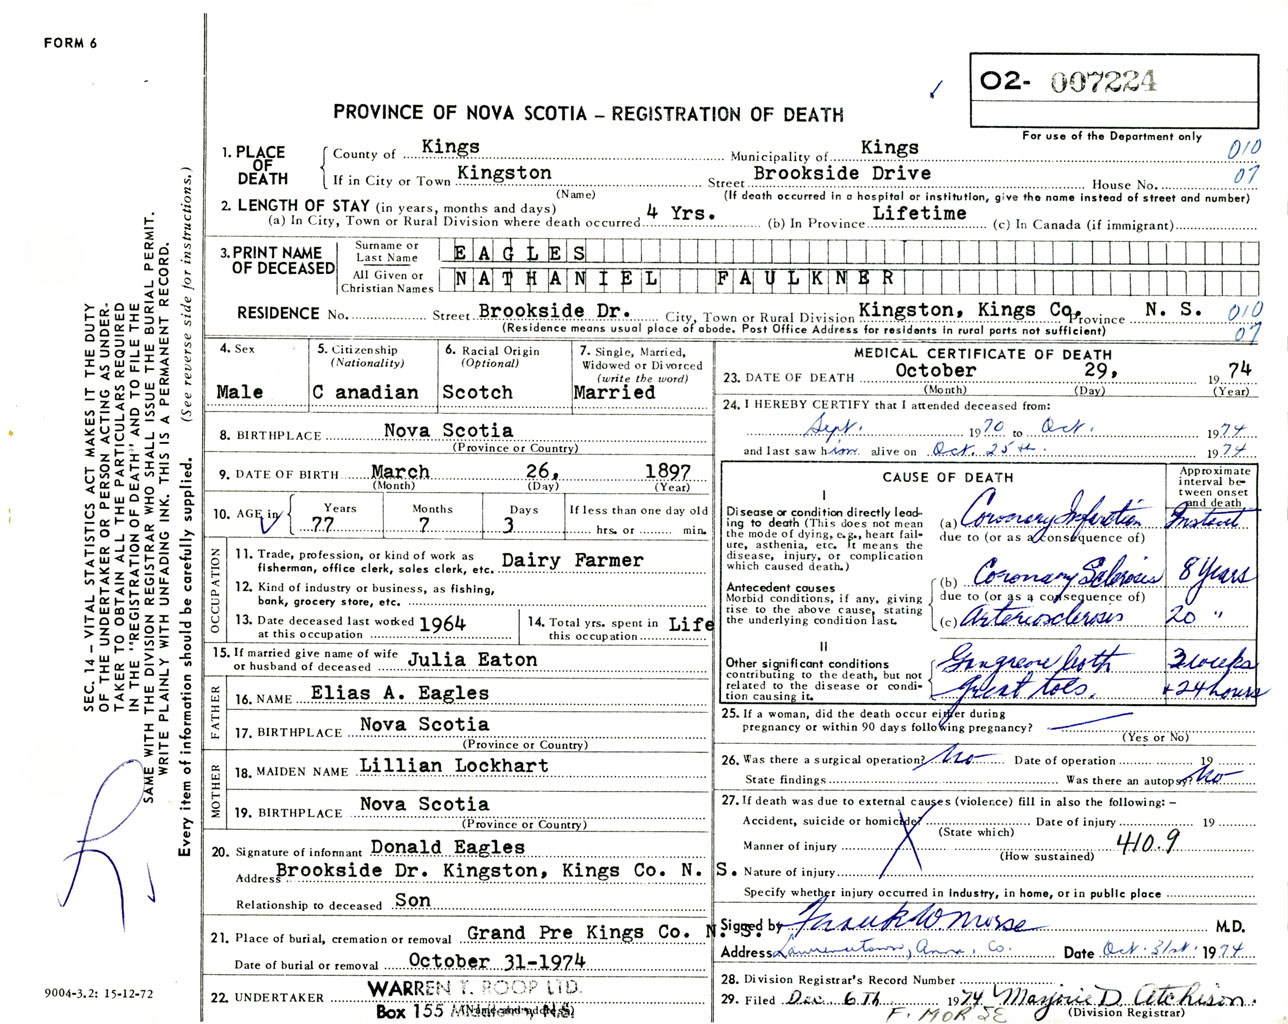 FORM 6
02- 007224
PROVINCE OF NOVA SCOTIA – REGISTRATION OF DEATH
For use of the Department only
1. PLACE OF DEATH
County of Kings Municipality of Kings 010
If in City or Town Kingston Street Brookside Drive House No. 07
(Name) (If death occurred in a hospital or institution, give the name instead of street and number)
2. LENGTH OF STAY (in years, months and days)
(a) In City, Town or Rural Division where death occurred 4 Yrs. (b) In Province Lifetime (c) In Canada (if immigrant)
3. PRINT NAME OF DECEASED
Surname or Last Name EAGLES
All Given or Christian Names NATHANIEL FAULKNER
RESIDENCE No. Street Brookside Dr. City, Town or Rural Division Kingston, Kings Co, Province N. S. 010
(Residence means usual place of abode. Post Office Address for residents in rural parts not sufficient) 07
4. Sex
Male
5. Citizenship
(Nationality)
C anadian
6. Racial Origin
(Optional)
Scotch
7. Single, Married,
Widowed or Divorced
(write the word)
Married
8. BIRTHPLACE Nova Scotia
(Province or Country)
9. DATE OF BIRTH March 26, 1897
(Month) (Day) (Year)
10. AGE in
Years Months Days If less than one day old
77 7 3 hrs. or min.
OCCUPATION
11. Trade, profession, or kind of work as
fisherman, office clerk, sales clerk, etc. Dairy Farmer
12. Kind of industry or business, as fishing,
bank, grocery store, etc.
13. Date deceased last worked
at this occupation 1964
14. Total yrs. spent in
this occupation Life
15. If married give name of wife
or husband of deceased Julia Eaton
FATHER
16. NAME Elias A. Eagles
17. BIRTHPLACE Nova Scotia
(Province or Country)
MOTHER
18. MAIDEN NAME Lillian Lockhart
19. BIRTHPLACE Nova Scotia
(Province or Country)
20. Signature of informant Donald Eagles
Address Brookside Dr. Kingston, Kings Co. N. S.
Relationship to deceased Son
21. Place of burial, cremation or removal Grand Pre Kings Co. N. S.
Date of burial or removal October 31-1974
22. UNDERTAKER WARREN T. ROOP LTD.
Box 155 (Name and address) N.S.
MEDICAL CERTIFICATE OF DEATH
23. DATE OF DEATH October 29, 1974
(Month) (Day) (Year)
24. I HEREBY CERTIFY that I attended deceased from:
Sept. 1970 to Oct. 1974
and last saw him alive on Oct. 25th. 1974
CAUSE OF DEATH
Approximate
interval be-
tween onset
and death
I
Disease or condition directly lead-
ing to death (This does not mean
the mode of dying, e.g., heart fail-
ure, asthenia, etc. It means the
disease, injury, or complication
which caused death.)
(a) Coronary Infarction Instant
due to (or as a consequence of)
Antecedent causes
Morbid conditions, if any, giving
rise to the above cause, stating
the underlying condition last.
(b) Coronary Sclerosis 8 Years
due to (or as a consequence of)
(c) Arteriosclerosis 20 "
II
Other significant conditions
contributing to the death, but not
related to the disease or condi-
tion causing it.
Gangrene both 3 weeks
Great toes. + 24 hours
25. If a woman, did the death occur either during
pregnancy or within 90 days following pregnancy?
(Yes or No)
26. Was there a surgical operation? No Date of operation 19
State findings Was there an autopsy? No
27. If death was due to external causes (violence) fill in also the following: –
Accident, suicide or homicide? Date of injury 19
(State which)
Manner of injury 410.9
(How sustained)
Nature of injury
Specify whether injury occurred in Industry, in home, or in public place
Signed by Frank W Morse M.D.
Address Lawrencetown, Anna. Co. Date Oct. 31st. 1974
28. Division Registrar's Record Number
29. Filed Dec 6th 1974 Marjorie D. Atchison.
(Division Registrar)
F. MORSE
SEC. 14 – VITAL STATISTICS ACT MAKES IT THE DUTY
OF THE UNDERTAKER OR PERSON ACTING AS UNDER-
TAKER TO OBTAIN ALL THE PARTICULARS REQUIRED
IN THE "REGISTRATION OF DEATH" AND TO FILE THE
SAME WITH THE DIVISION REGISTRAR WHO SHALL ISSUE THE BURIAL PERMIT.
WRITE PLAINLY WITH UNFADING INK. THIS IS A PERMANENT RECORD.
Every item of information should be carefully supplied. (See reverse side for instructions.)
9004-3.2: 15-12-72